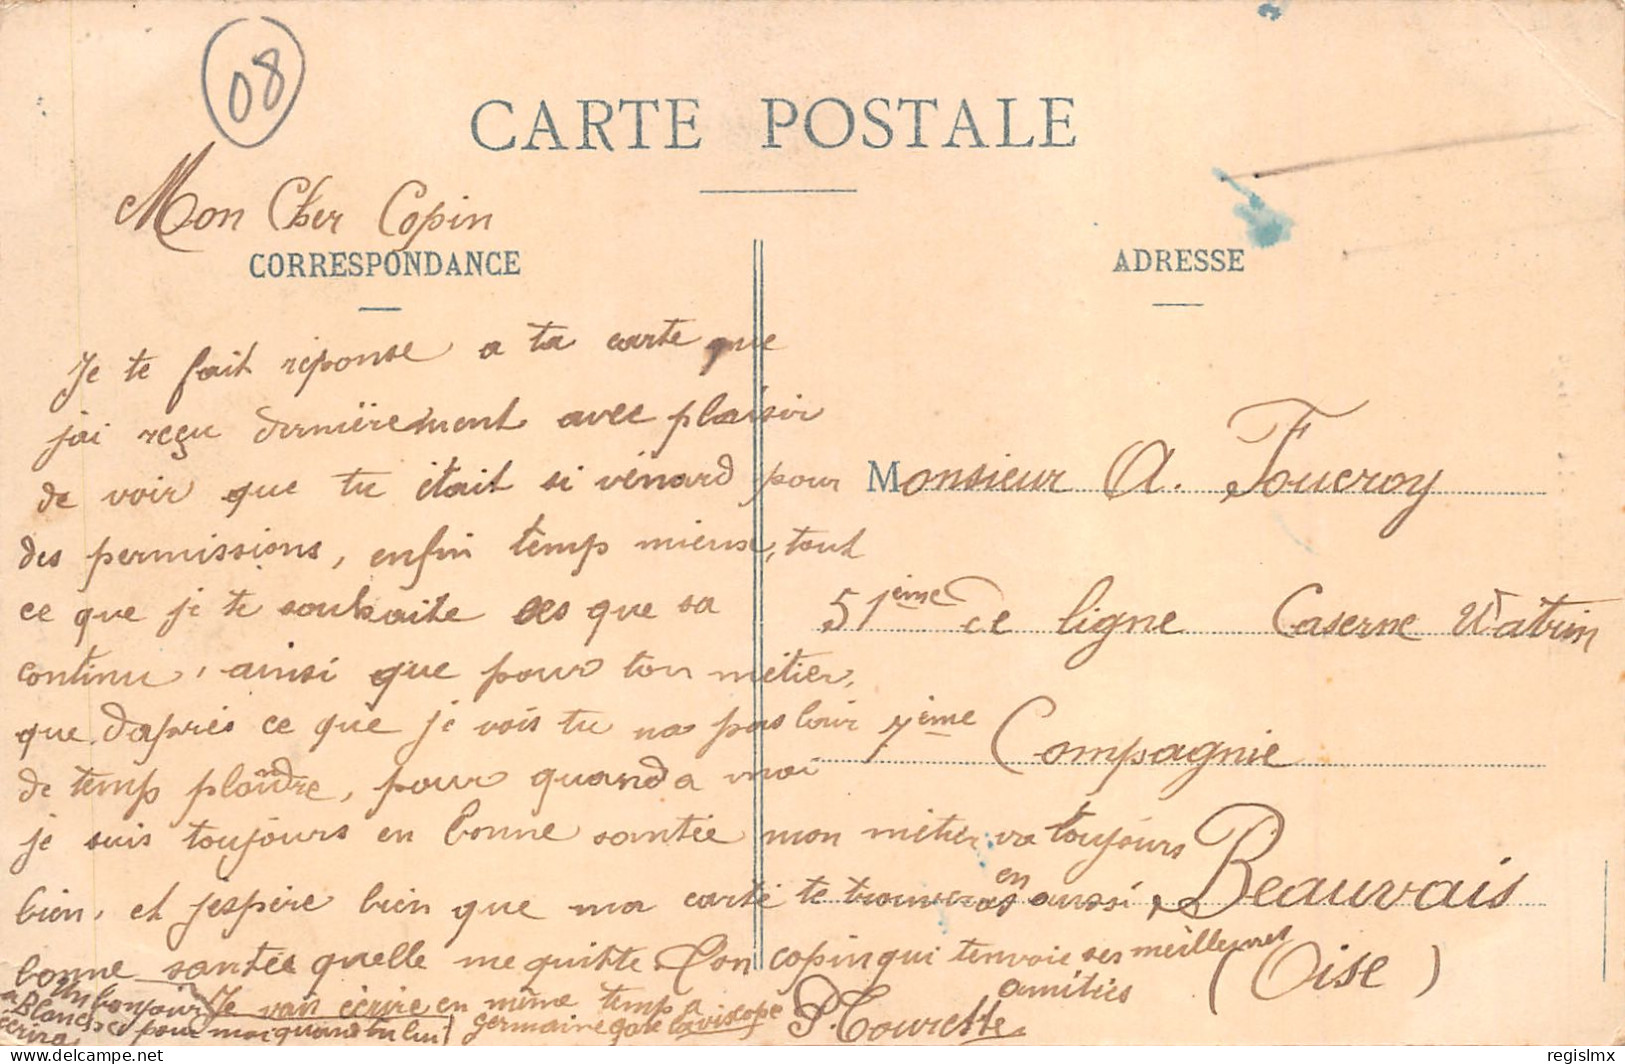 08
CARTE POSTALE
Mon Cher Copin
CORRESPONDANCE
Je te fait réponse a ta carte que
j'ai reçu dernièrement avec plaisir
de voir que tu était si vénard pour
des permissions, enfin temp mieux, tout
ce que je te souhaite ces que sa
continu, ainsi que pour ton métier,
que d'après ce que je vois tu na pas loin
de temp plaindre, pour quand a moi
je suis toujours en bonne santée mon métier va toujours
bien, et j'espère bien que ma carte te trouveras en aussi
bonne santée quelle me quitte. Ton copin qui t'envoie ses meilleures
amitiés
P. Tourette
Un bonjour
a Blanche pour moi quand tu lui
écrira
Je vais écrire en même temp a
germaine gare
ADRESSE
Monsieur A. Foucroy
51ème de ligne Caserne Watrin
7ème Compagnie
Beauvais
(Oise)
regislmx
delcampe.net